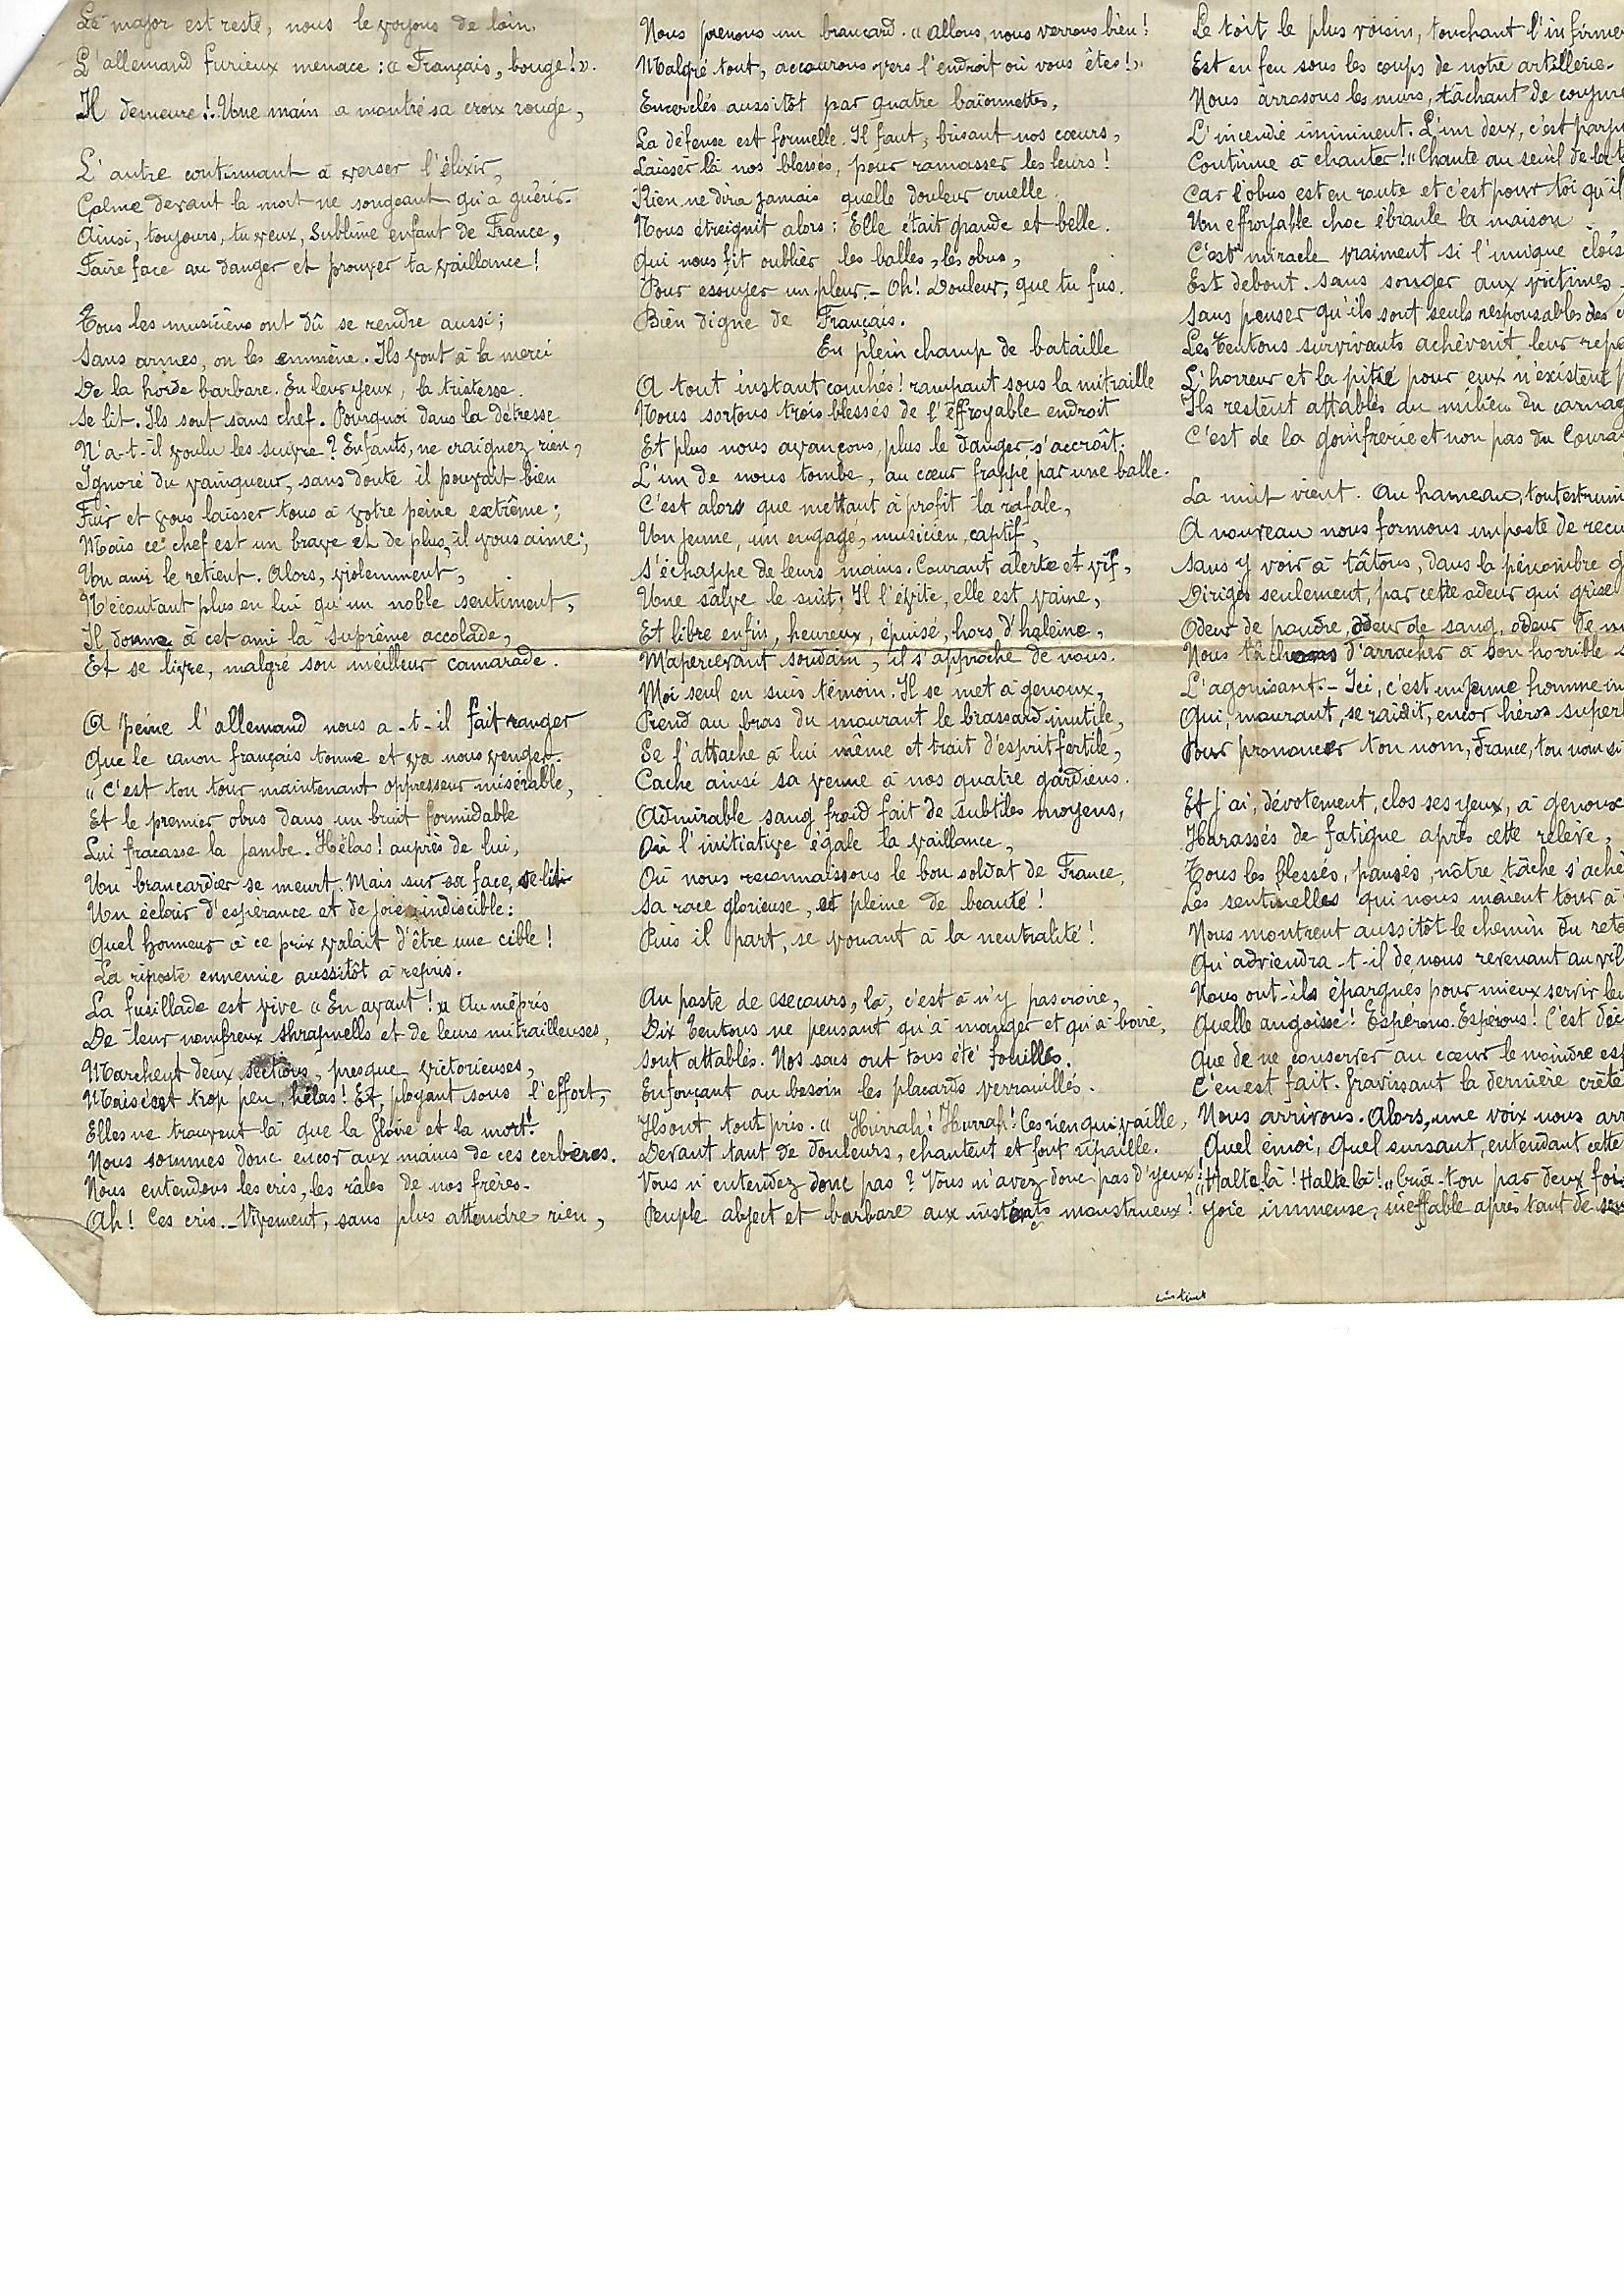 Le major est resté, nous le voyons de loin.
L'allemand furieux menace : « Français, bouge ! ».
Il demeure !. Une main a montré sa croix rouge,
L'autre continuant à verser l'élixir,
Calme devant la mort ne songeant qu'à guérir.
Ainsi, toujours, tu veux, Sublime enfant de France,
Faire face au danger et prouver ta vaillance !
Tous les musiciens ont dû se rendre aussi ;
Sans armes, on les emmène. Ils vont à la merci
De la horde barbare. En leur yeux, la tristesse
Se lit. Ils sont sans chef. Pourquoi dans la détresse
N'a-t-il voulu les suivre ? Enfants, ne craignez rien,
Ignoré du vainqueur, sans doute il pouvait bien
Fuir et vous laisser tous à votre peine extrême ;
Mais ce chef est un brave et de plus, il vous aime ;
Un ami le retient. Alors, violemment,
N'écoutant plus en lui qu'un noble sentiment,
Il donne à cet ami la suprême accolade,
Et se livre, malgré son meilleur camarade.
A peine l'allemand nous a-t-il fait ranger
Que le canon français tonne et va nous venger.
« C'est ton tour maintenant oppresseur misérable,
Et le premier obus dans un bruit formidable
Lui fracasse la jambe. Hélas ! auprès de lui,
Un brancardier se meurt. Mais sur sa face,
Un éclair d'espérance et de joie indiscible :
Quel honneur à ce prix valait d'être une cible !
La riposte ennemie aussitôt a repris.
La fusillade est vive « En avant ! » Au mépris
De leur nombreux shrapnells et de leurs mitrailleuses,
Marchent deux sections, presque victorieuses,
Mais c'est trop peu, hélas ! Et, ployant sous l'effort,
Elles ne trouvent là que la Gloire et la mort !
Nous sommes donc encor aux mains de ces cerbères.
Nous entendons les cris, les râles de nos frères.
Ah ! Ces cris.. Vivement, sans plus attendre rien,
Nous prenons un brancard. « Allons, nous verrons bien !
Malgré tout, accourons vers l'endroit où vous êtes ! »
Encerclés aussitôt par quatre baïonnettes,
La défense est formelle. Il faut, brisant nos cœurs,
Laisser là nos blessés, pour ramasser les leurs !
Rien ne dira jamais quelle douleur cruelle
Nous étreignit alors : Elle était grande et belle.
Qui nous fit oublier les balles, les obus,
Pour essuyer un pleur.- Oh ! Douleur, que tu fus
Bien digne de Français.
En plein champ de bataille
A tout instant couchés ! rampant sous la mitraille
Nous sortons trois blessés de l'effroyable endroit
Et plus nous avançons, plus le danger s'accroît.
L'un de nous tombe, au cœur frappé par une balle.
C'est alors que mettant à profit la rafale,
Un jeune, un engagé, musicien, captif,
S'échappe de leurs mains. Courant alerte et vif,
Une salve le suit. Il l'évite, elle est vaine,
Et libre enfin, heureux, épuisé, hors d'haleine,
M'apercevant soudain, il s'approche de nous.
Moi seul en suis témoin. Il se met à genoux,
Prend au bras du mourant le brassard inutile,
Se l'attache à lui même et trait d'esprit fertile,
Cache ainsi sa venue à nos quatre gardiens.
Admirable sang froid fait de subtils moyens,
Où l'initiative égale la vaillance,
Où nous reconnaissons le bon soldat de France,
Sa race glorieuse, et pleine de beauté !
Puis il part, se vouant à la neutralité !
Au poste de secours, là, c'est à n'y pas croire,
Dix Teutons ne pensant qu'à manger et qu'à boire,
Sont attablés. Nos sacs ont tous été fouillés.
Enfonçant au besoin les placards verrouillés.
Ils ont tout pris. « Hurrah ! Hurrah ! Ces rien qui vaille,
Devant tant de douleurs, chantent et font ripaille.
Vous n'entendez donc pas ? Vous n'avez donc pas d'yeux !
Peuple abject et barbare aux instincts monstrueux !
instinct
Le toit le plus voisin, touchant l'infirme
Est en feu sous les coups de notre artillerie.
Nous arrosons les murs, tâchant de conjure
L'incendie imminent. L'un deux, c'est
Continue à chanter ! « Chante au seuil de la
Car l'obus est en route et c'est pour toi qu'il
Un effroyable choc ébranle la maison
C'est miracle vraiment si l'unique clois
Est debout. Sans songer aux victimes
Sans penser qu'ils sont seuls responsables des
Les Teutons survivants achèvent leur repa
L'horreur et la pitié pour eux n'existent
Ils restent attablés au milieu du carnag
C'est de la goinfrerie et non pas du Coura
La nuit vient. Au hameau, tout est
A nouveau nous formons un poste de
Sans y voir à tâtons, dans la pénombre
Dirigés seulement, par cette odeur qui grise
Odeur de poudre, odeur de sang, odeur de
Nous tâchons d'arracher à son horrible
L'agonisant.- Ici, c'est un jeune homme
Qui, mourant, se raidit, encor héros super
Pour prononcer ton nom, France, ton nom si
Et j'ai, dévotement, clos ses yeux, à genoux
Harassés de fatigue après cette relève,
Tous les blessés, pansés, nôtre tâche s'achè
Les sentinelles qui nous tour à
Nous montrent aussitôt le chemin du reto
Qu'adviendra-t-il de nous revenant au
Nous ont-ils épargnés pour mieux servir
Quelle angoisse ! Espérons. Espérons ! C'est
Que de ne conserver au cœur le moindre esp
C'en est fait. Gravissant la dernière crête
Nous arrivons. Alors, une voix nous arr
Quel émoi, Quel sursaut, entendant cette
"Halte là ! Halte là !" Cria-t-on par deux foi
Joie immense, ineffable après tant de